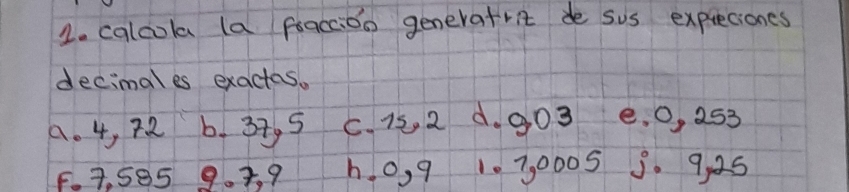 1. calcola la fracción generatriz de sus expreciones
decimales exactas.
a. 4,72 b. 37,5 c. 15,2 d. 9,03 e. 0,253
f. 7,585 g. 7,9 h. 0,9 i. 7,0005 j. 9,25